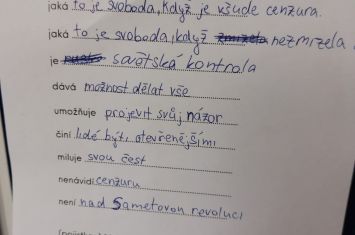 jaká to je svoboda, když je všude cenzura.
jaká to je svoboda, když nezmizela
je sovětská kontrola
dává možnost dělat vše
umožňuje projevit svůj názor
činí lidé být otevřenějšími
miluje svou čest
nenávidí cenzuru
není nad Sametovou revoluci